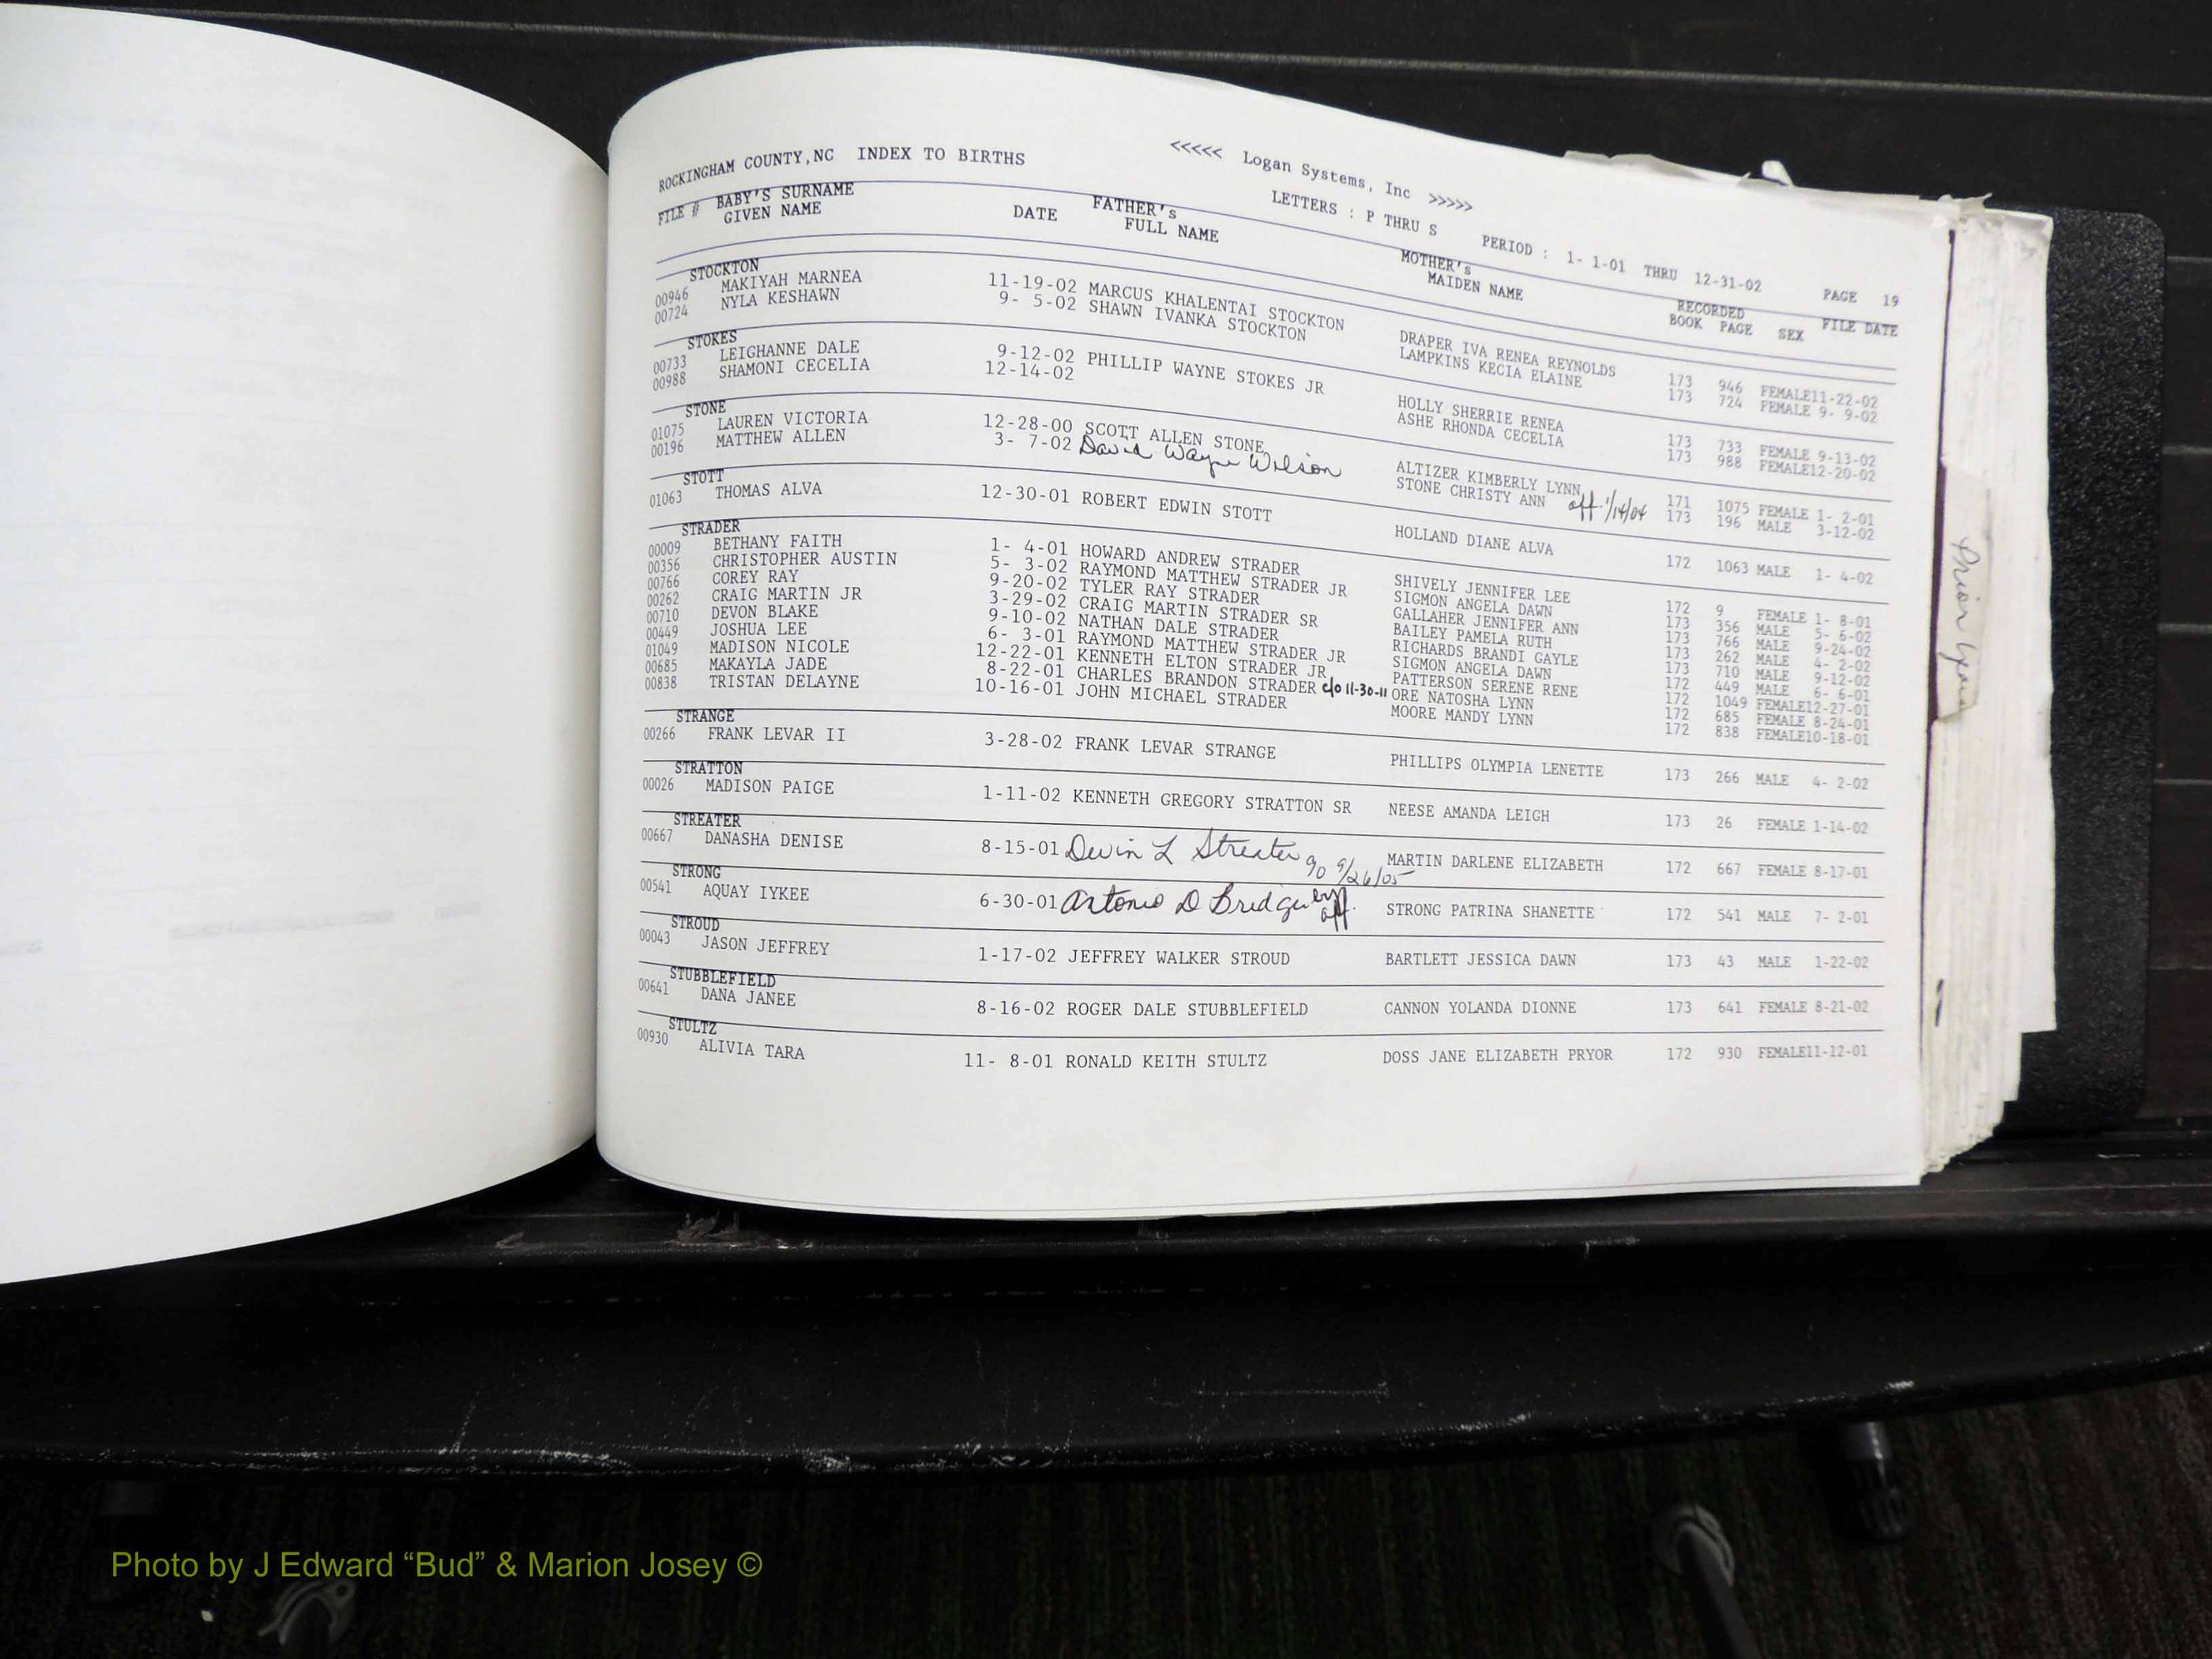 ROCKINGHAM COUNTY,NC INDEX TO BIRTHS <<<<< Logan Systems, Inc >>>>>
LETTERS : P THRU S PERIOD : 1- 1-01 THRU 12-31-02 PAGE 19
FILE # BABY'S SURNAME GIVEN NAME DATE FATHER's FULL NAME MOTHER's MAIDEN NAME RECORDED BOOK PAGE SEX FILE DATE
STOCKTON
00946 MAKIYAH MARNEA 11-19-02 MARCUS KHALENTAI STOCKTON DRAPER IVA RENEA REYNOLDS 173 946 FEMALE11-22-02
00724 NYLA KESHAWN 9- 5-02 SHAWN IVANKA STOCKTON LAMPKINS KECIA ELAINE 173 724 FEMALE 9- 9-02
STOKES
00733 LEIGHANNE DALE 9-12-02 PHILLIP WAYNE STOKES JR HOLLY SHERRIE RENEA 173 733 FEMALE 9-13-02
00988 SHAMONI CECELIA 12-14-02 ASHE RHONDA CECELIA 173 988 FEMALE12-20-02
STONE
01075 LAUREN VICTORIA 12-28-00 SCOTT ALLEN STONE ALTIZER KIMBERLY LYNN 171 1075 FEMALE 1- 2-01
00196 MATTHEW ALLEN 3- 7-02 David Wayne Wilson STONE CHRISTY ANN aff. 1/14/04 173 196 MALE 3-12-02
STOTT
01063 THOMAS ALVA 12-30-01 ROBERT EDWIN STOTT HOLLAND DIANE ALVA 172 1063 MALE 1- 4-02
STRADER
00009 BETHANY FAITH 1- 4-01 HOWARD ANDREW STRADER SHIVELY JENNIFER LEE 172 9 FEMALE 1- 8-01
00356 CHRISTOPHER AUSTIN 5- 3-02 RAYMOND MATTHEW STRADER JR SIGMON ANGELA DAWN 173 356 MALE 5- 6-02
00766 COREY RAY 9-20-02 TYLER RAY STRADER GALLAHER JENNIFER ANN 173 766 MALE 9-24-02
00262 CRAIG MARTIN JR 3-29-02 CRAIG MARTIN STRADER SR BAILEY PAMELA RUTH 173 262 MALE 4- 2-02
00710 DEVON BLAKE 9-10-02 NATHAN DALE STRADER RICHARDS BRANDI GAYLE 173 710 MALE 9-12-02
00449 JOSHUA LEE 6- 3-01 RAYMOND MATTHEW STRADER JR SIGMON ANGELA DAWN 172 449 MALE 6- 6-01
01049 MADISON NICOLE 12-22-01 KENNETH ELTON STRADER JR PATTERSON SERENE RENE 172 1049 FEMALE12-27-01
00685 MAKAYLA JADE 8-22-01 CHARLES BRANDON STRADER c/o 11-30-11 ORE NATOSHA LYNN 172 685 FEMALE 8-24-01
00838 TRISTAN DELAYNE 10-16-01 JOHN MICHAEL STRADER MOORE MANDY LYNN 172 838 FEMALE10-18-01
STRANGE
00266 FRANK LEVAR II 3-28-02 FRANK LEVAR STRANGE PHILLIPS OLYMPIA LENETTE 173 266 MALE 4- 2-02
STRATTON
00026 MADISON PAIGE 1-11-02 KENNETH GREGORY STRATTON SR NEESE AMANDA LEIGH 173 26 FEMALE 1-14-02
STREATER
00667 DANASHA DENISE 8-15-01 Devin L Streater 9/26/05 MARTIN DARLENE ELIZABETH 172 667 FEMALE 8-17-01
STRONG
00541 AQUAY IYKEE 6-30-01 Antonio D by aff. STRONG PATRINA SHANETTE 172 541 MALE 7- 2-01
STROUD
00043 JASON JEFFREY 1-17-02 JEFFREY WALKER STROUD BARTLETT JESSICA DAWN 173 43 MALE 1-22-02
STUBBLEFIELD
00641 DANA JANEE 8-16-02 ROGER DALE STUBBLEFIELD CANNON YOLANDA DIONNE 173 641 FEMALE 8-21-02
STULTZ
00930 ALIVIA TARA 11- 8-01 RONALD KEITH STULTZ DOSS JANE ELIZABETH PRYOR 172 930 FEMALE11-12-01
Prior Years
Photo by J Edward “Bud” & Marion Josey ©